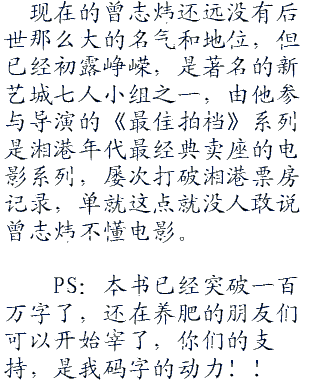 现在的曾志炜还远没有后
世那么大的名气和地位，但
已经初露峥嵘，是著名的新
艺城七人小组之一，由他参
与导演的《最佳拍档》系列
是湘港年代最经典卖座的电
影系列，屡次打破湘港票房
记录，单就这点就没人敢说
曾志炜不懂电影。
PS：本书已经突破一百
万字了，还在养肥的朋友们
可以开始宰了，你们的支
持，是我码字的动力！！